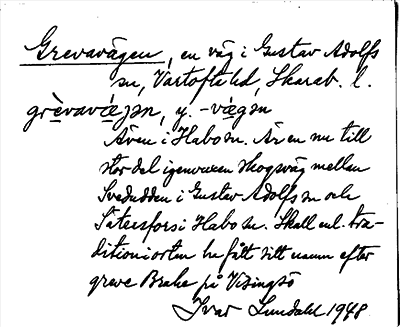 Grevavägen, en väg i Gustav Adolfs
sn, Vartofta hd, Skarab. l.
grèvavä́gən, y. -vägən
Även i Habo sn. Är en nu till
stor del igenvuxen skogsväg mellan
Svedudden i Gustav Adolfs sn och
Sätersfors i Habo sn. Skall enl. tra-
dition i orten ha fått sitt namn efter
greve Brahe på Visingsö
Ivar Lundahl 1948